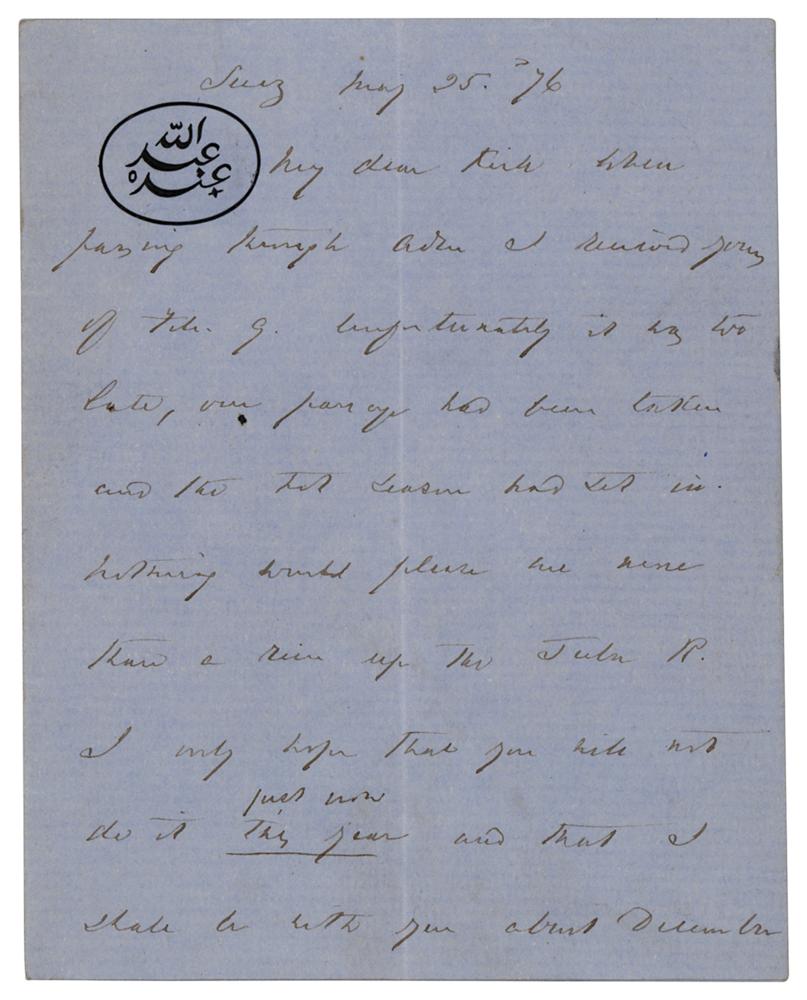 Suez May 25. '76
الله
عبد
عبده
My dear Kirk when
passing through Aden I received yours
of Feb. 9. Unfortunately it was too
late, our passage had been taken
and the hot season had set in.
Nothing would please me more
than a run up the Juba R.
I only hope that you will not
just now
do it this year and that I
shall be with you about December